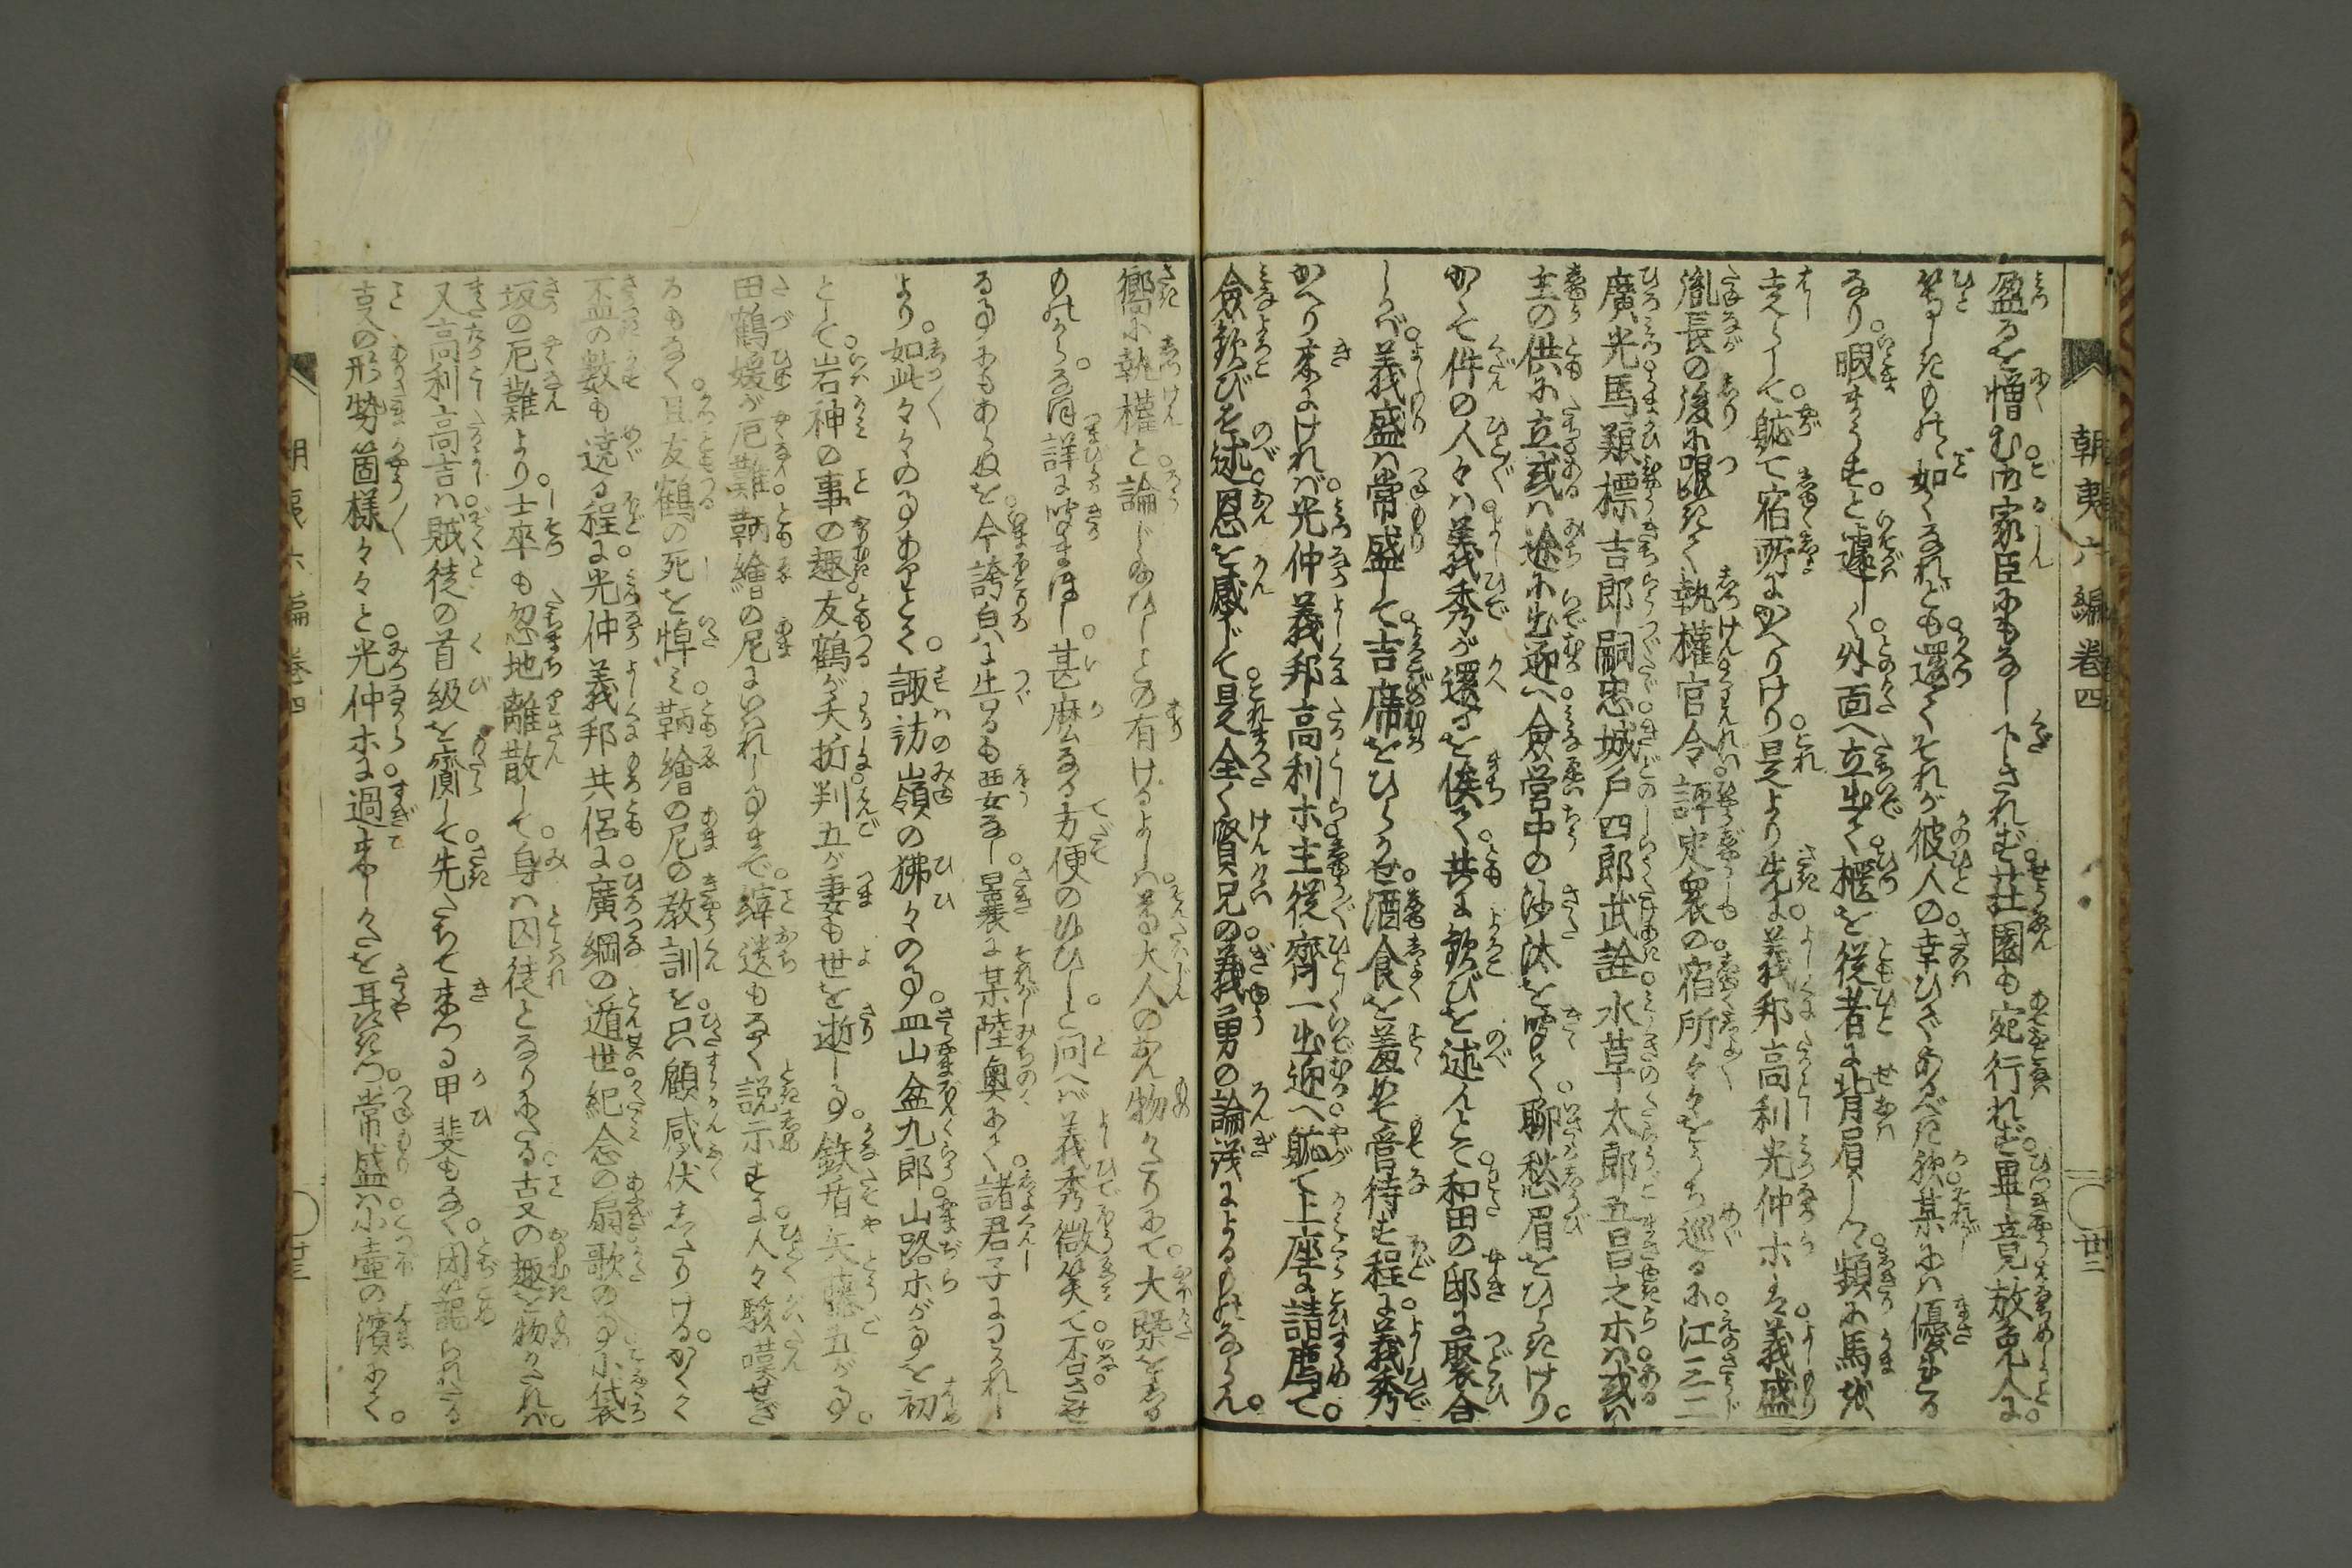 朝夷六編卷四 〇廿二
盈るを憎む。家臣にもなし下されず。莊園も宛行れず。畢竟放免人に
等しきものゝ如くなれども。還てそれが彼人の幸ひぞあるべき歟。某には優たる
なり。暇まうすと遽しく。外面へ立出て。櫃を從者に背負しつ。頻に馬を
走らして。軈て宿所にかへりけり。是より先に。義邦高利光仲ホは。義盛
胤長の後に跟きて。執權官令評定衆の宿所々々をうち巡るに。江三二
廣光馬艱標吉郎嗣忠城戸四郎武詮水草太郎五昌之ホは。或は
主の供に立。或は途に出迎へ。僉營中の沙汰を聞て。聊愁眉をひらきけり。
かくて件の人々は。義秀が還るを俟て。共に歡びを述んとて。和田の邸に聚合
しかば。義盛は常盛して。吉席をひらかせ。酒食を羞めて管待す程に。義秀
かへり來にければ。光仲義邦高利ホ主從齊一出迎へ。軈て上座に請薦て。
僉歡びを述恩を感じて。是全く賢兄の義勇の論議によるものならん。
嚮に執權と論じ給ひしとの有けるよしは。尊大人のおん物がたりにて。大槩をしる
ものから。なほ詳に聞まほし。甚麼なる方便のゆひしと問へば。義秀微笑て。否させ
る事にもあらぬを。今誇白に告るも要なし。曩に某陸奥にて。諸君子にわかれし
より。如此々々の事ありとて。諏訪嶺の狒々の事。皿山盆九郎山路ホが事を初
として。岩神の事の趣。友鶴が夭折判五が妻も世を逝りし事。鉄盾矢藤五が事。
田鶴媛が厄難。鞆繪の尼にいはれし事まで。縡遺もなく説示すに。人々駭嘆せざ
るもなく。且友鶴の死を悼み。鞆繪の尼の教訓を。只顧感伏したりける。かくて
不盃の數も遶る程に。光仲義邦共侶に。廣綱の遁世紀念の扇歌の事。小袋
坂の厄難より。士卒も忽地離散して。身は囚徒となりにたる。古又の趣を物がたれば。
又高利高吉は。賊徒の首級を齎して。先だちて來つる甲斐もなく。閉籠られたる
吉又の形勢箇様々々と。光仲ホに過來しかたを耳語きつ。常盛は小壺の濱にて。
朝夷六編卷四 〇廿三